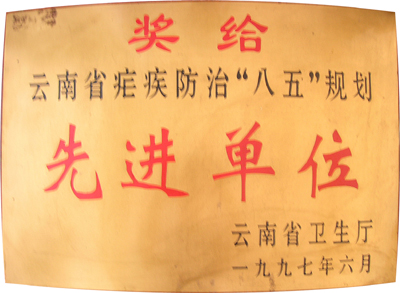 奖给
云南省疟疾防治“八五”规划
先进单位
云南省卫生厅
一九九七年六月